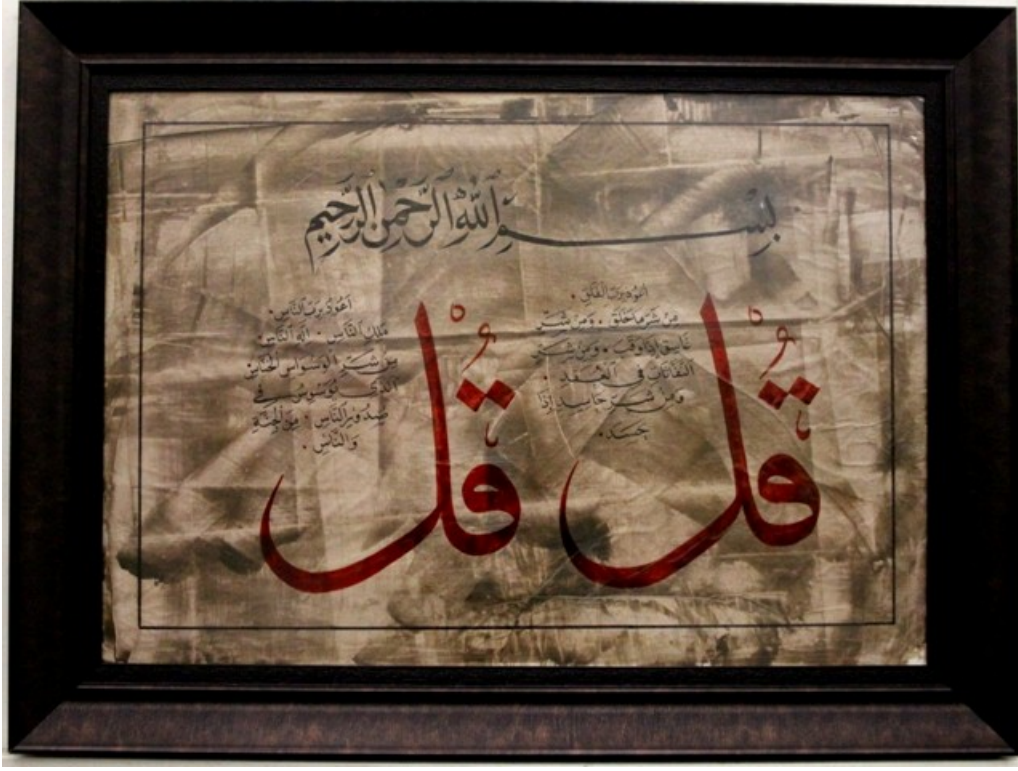 بِسْمِ اللَّهِ الرَّحْمَٰنِ الرَّحِيمِ
قُلْ
أَعُوذُ بِرَبِّ الْفَلَقِ .
مِن شَرِّ مَا خَلَقَ . وَمِن شَرِّ
غَاسِقٍ إِذَا وَقَبَ . وَمِن شَرِّ
النَّفَّاثَاتِ فِي الْعُقَدِ .
وَمِن شَرِّ حَاسِدٍ إِذَا
حَسَدَ .
قُلْ
أَعُوذُ بِرَبِّ النَّاسِ .
مَلِكِ النَّاسِ . إِلَٰهِ النَّاسِ
مِن شَرِّ الْوَسْوَاسِ الْخَنَّاسِ
الَّذِي يُوَسْوِسُ فِي
صُدُورِ النَّاسِ . مِنَ الْجِنَّةِ
وَالنَّاسِ .